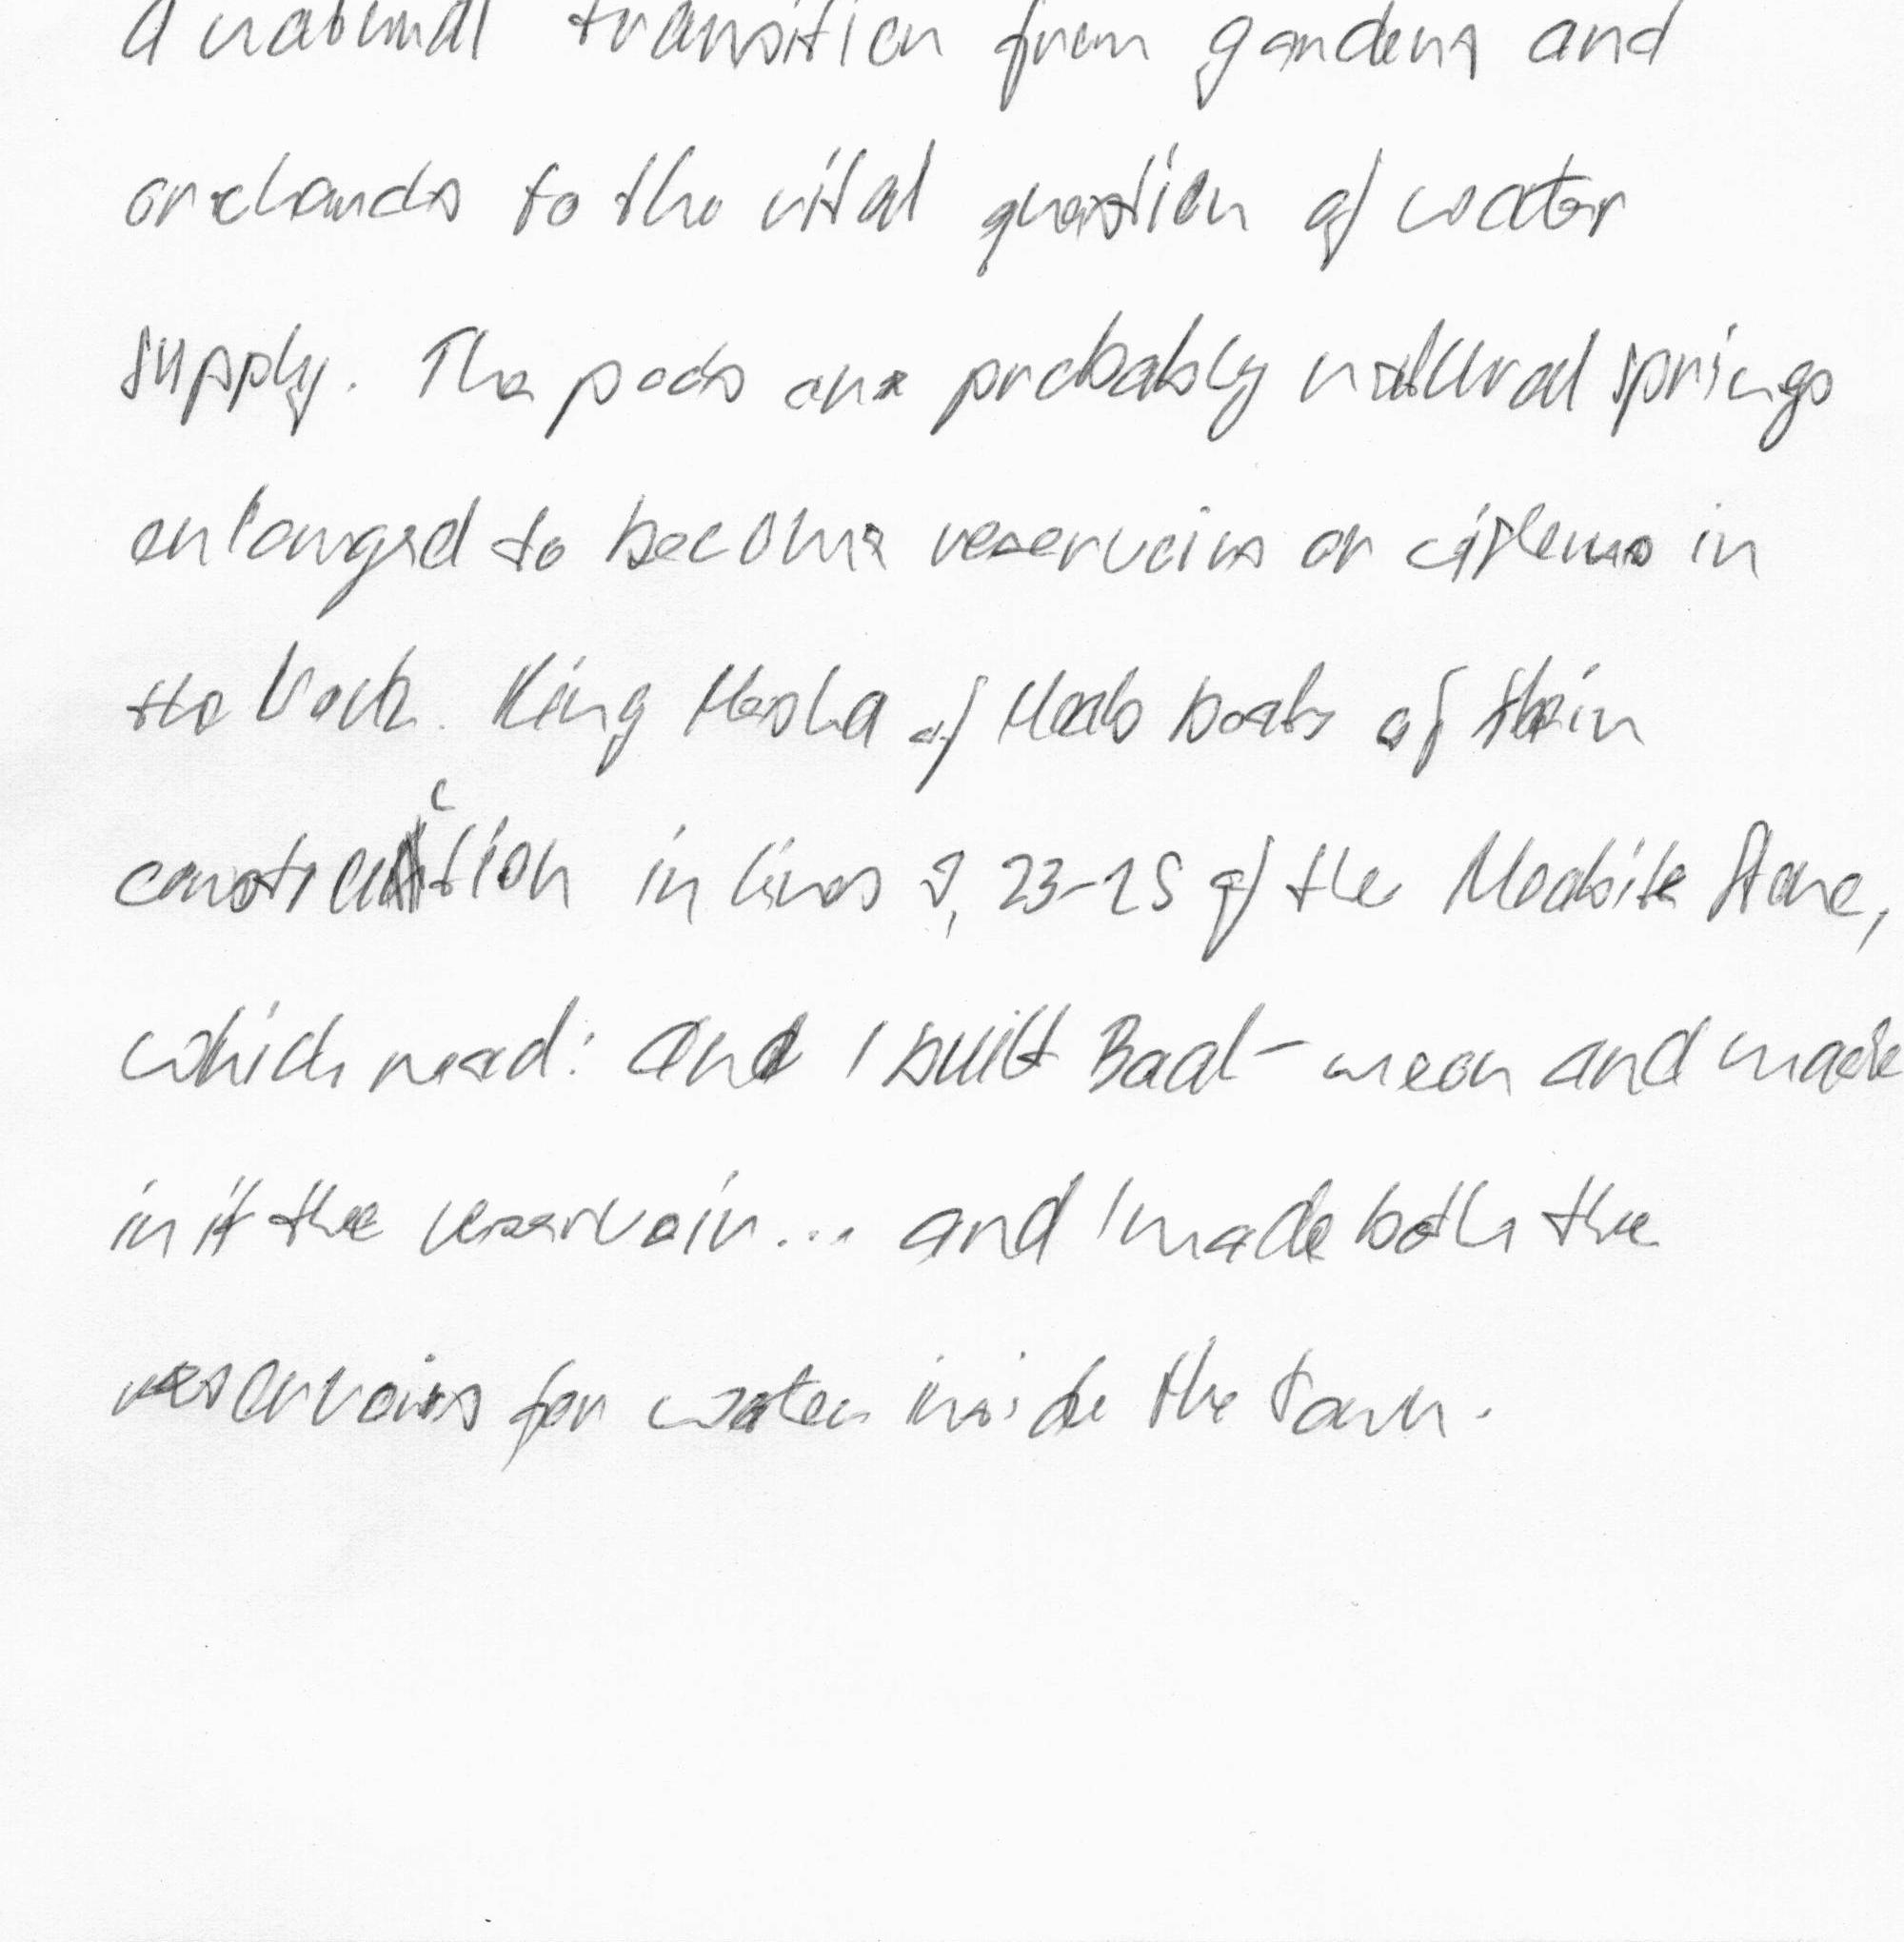 A natural transition from gardens and
orchards to the vital question of water
supply. The pools are probably natural springs
enlarged to become reservoirs or cisterns in
the rock. King Mesha of Moab boats of their
construction in lines 9, 23-25 of the Moabite Stone,
which read: and I built Baal-meon and made
in it the reservoir... and I made both the
reservoirs for water inside the town.